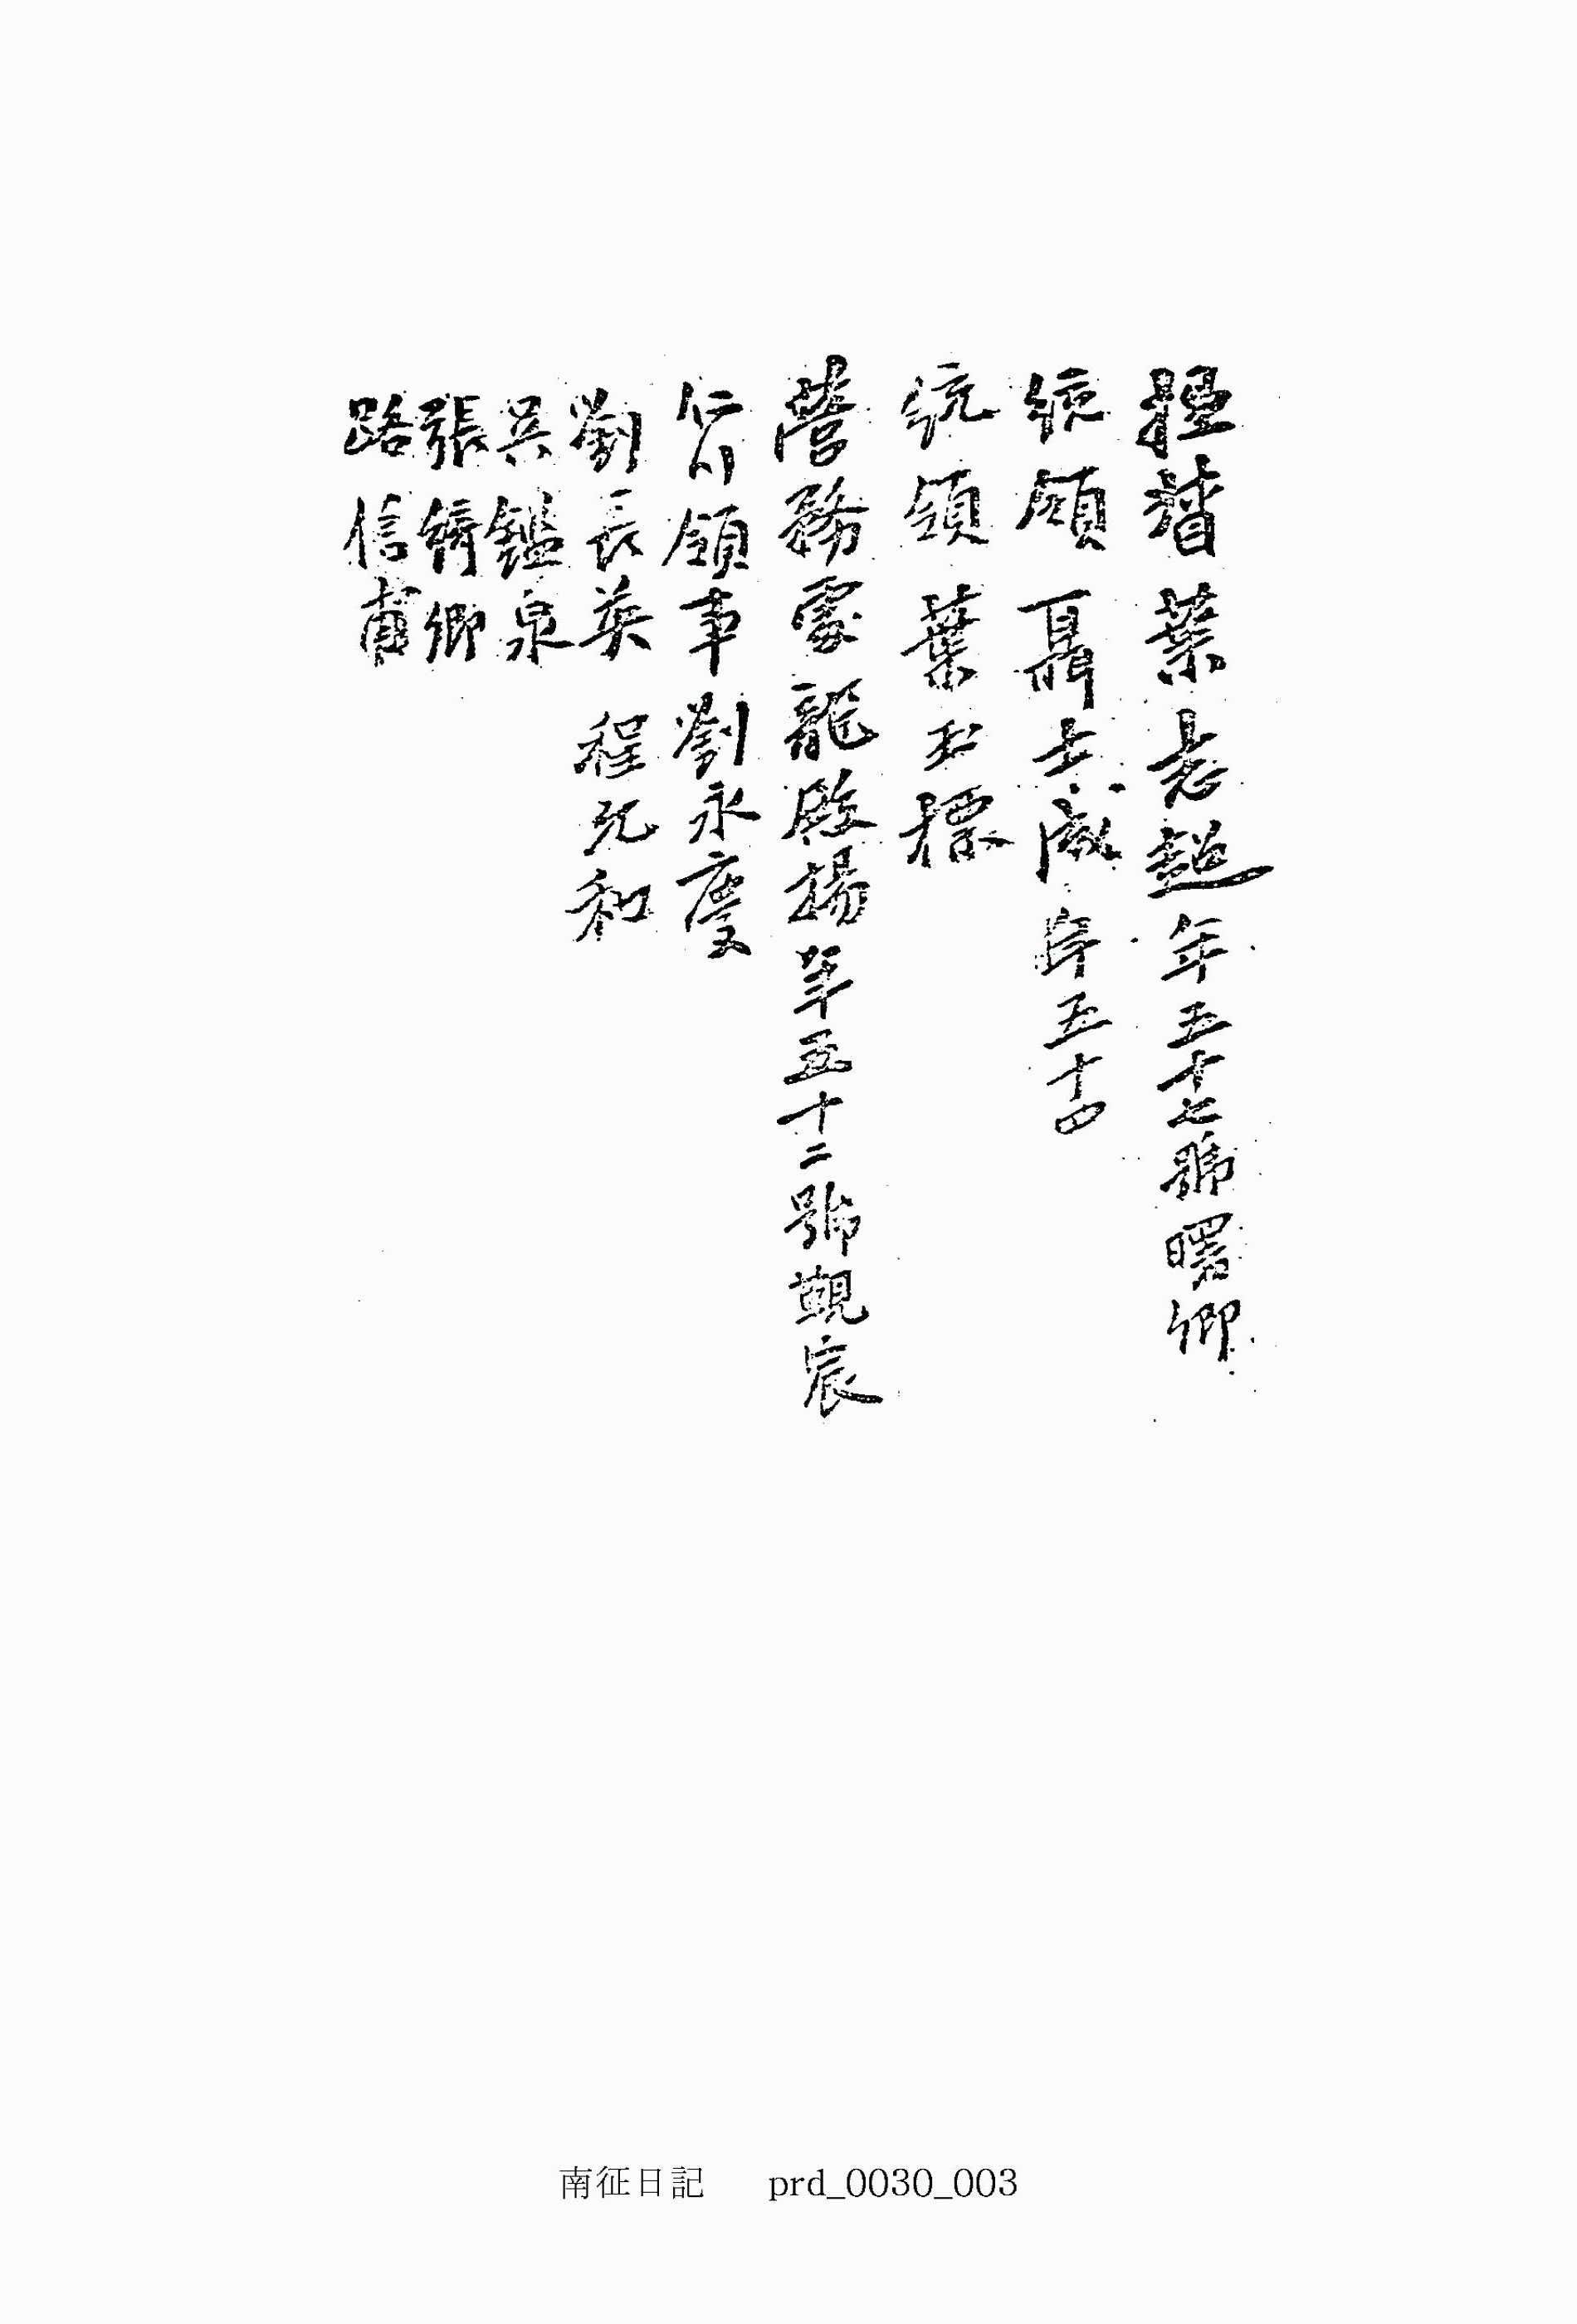 提督 葉志超 年五十七 號曙卿
統領 聶士成 年五十四
統領 葉玉標
營務處 龍殿揚 年五十二 號覲宸
仁川領事 劉永慶
劉長英 程元和
吳鑑泉
張錡卿
路信甫
南征日記 prd_0030_003